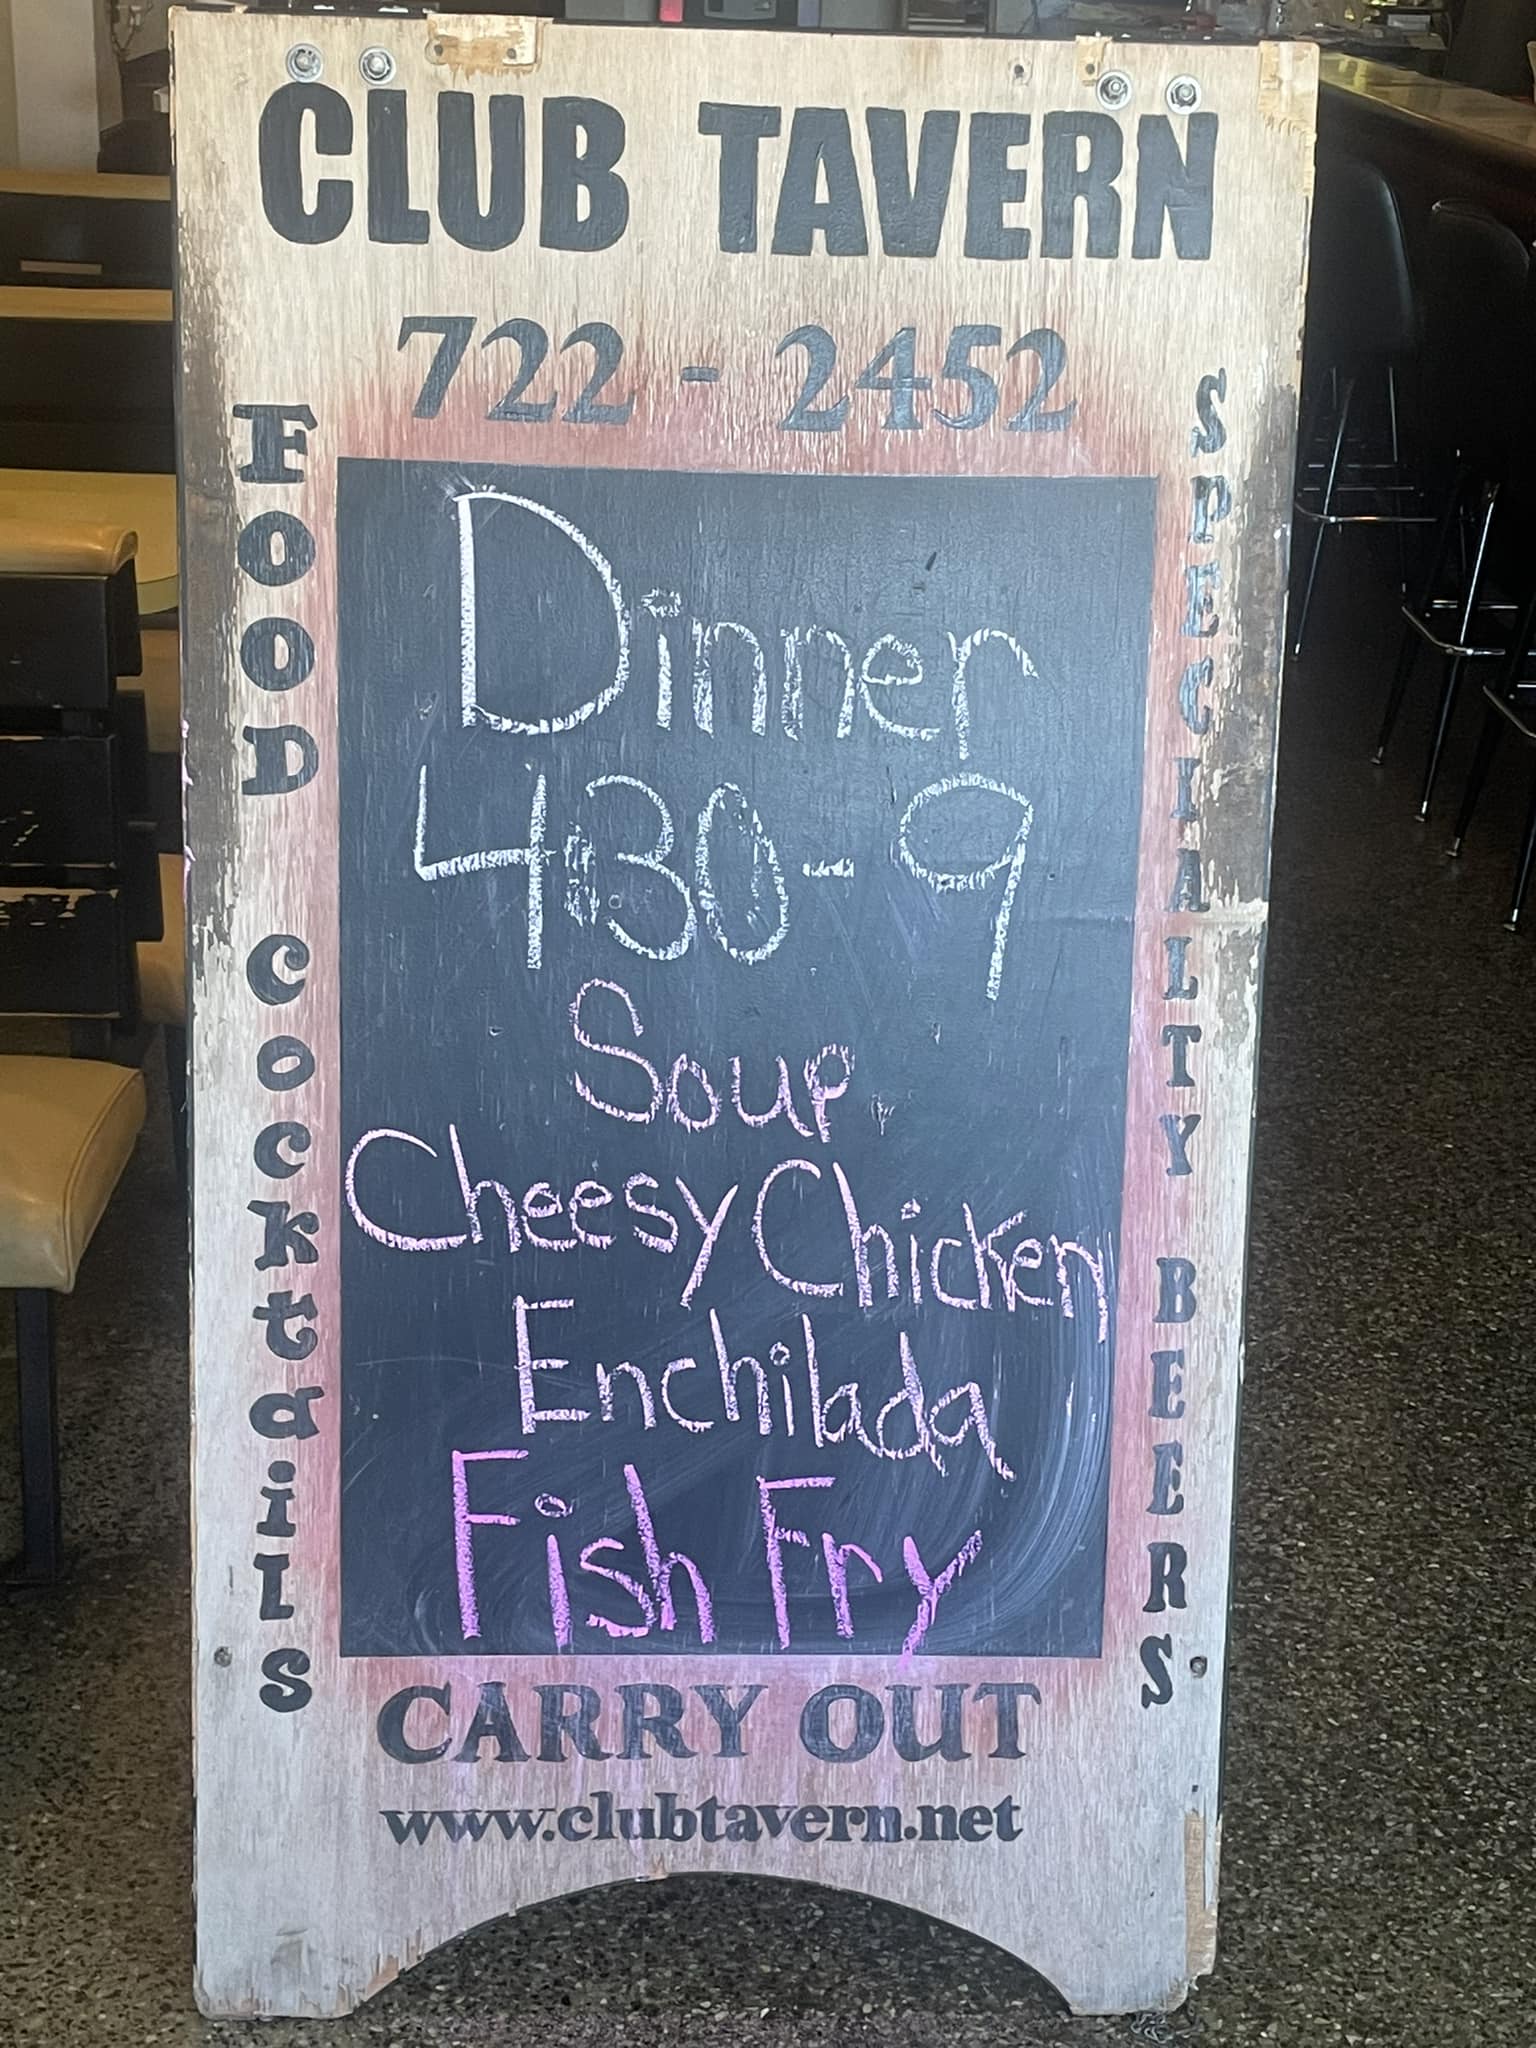 CLUB TAVERN
722-2452
FOOD COCKtaiLS
Dinner
4:30-9
Soup
Cheesy Chicken
Enchilada
Fish Fry
SPECIALTY BEERS
CARRY OUT
www.clubtavern.net